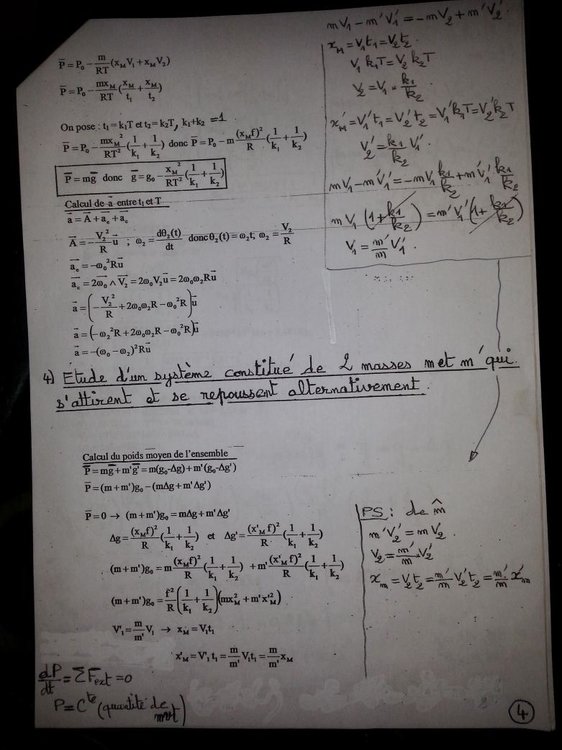 P̅ = P₀ − m/RT (x_M V₁ + x_M V₂)
P̅ = P₀ − mx_M/RT (x_M/t₁ + x_M/t₂)
On pose : t₁ = k₁T et t₂ = k₂T, k₁+k₂ = 1
P̅ = P₀ − mx_M²/RT² (1/k₁ + 1/k₂) donc P̅ = P₀ − m (x_M f)²/R (1/k₁ + 1/k₂)
P̅ = mg̅ donc g̅ = g₀ − x_M²/RT² (1/k₁ + 1/k₂)
Calcul de a⃗ entre t₁ et T
a⃗ = A⃗ + a⃗ₑ + a⃗c
A⃗ = −V₂²/R u⃗ ; ω₂ = dθ₂(t)/dt donc θ₂(t) = ω₂t, ω₂ = V₂/R
a⃗ₑ = −ω₀²Ru⃗
a⃗c = 2ω⃗₀ ∧ V⃗₂ = 2ω₀V₂u⃗ = 2ω₀ω₂Ru⃗
a⃗ = (−V₂²/R + 2ω₀ω₂R − ω₀²R)u⃗
a⃗ = (−ω₂²R + 2ω₀ω₂R − ω₀²R)u⃗
a⃗ = −(ω₀ − ω₂)²Ru⃗
mV₁ − m'V₁' = −mV₂ + m'V₂'
x_M = V₁t₁ = V₂t₂
V₁ k₁T = V₂ k₂T
V₂ = V₁ k₁/k₂
x_M' = V₁'t₁ = V₂'t₂ = V₁'k₁T = V₂'k₂T
V₂' = k₁/k₂ V₁'
mV₁ − m'V₁' = −mV₁ k₁/k₂ + m'V₁' k₁/k₂
mV₁ (1 + k₁/k₂) = m'V₁' (1 + k₁/k₂)
V₁ = m'/m V₁'
4) Etude d'un système constitué de 2 masses m et m' qui
s'attirent et se repoussent alternativement.
Calcul du poids moyen de l'ensemble
P̅ = mg̅ + m'g̅' = m(g₀-Δg) + m'(g₀-Δg')
P̅ = (m + m')g₀ − (mΔg + m'Δg')
P̅ = 0 → (m + m')g₀ = mΔg + m'Δg'
Δg = (x_M f)²/R (1/k₁ + 1/k₂) et Δg' = (x'_M f)²/R (1/k₁ + 1/k₂)
(m + m')g₀ = m (x_M f)²/R (1/k₁ + 1/k₂) + m' (x'_M f)²/R (1/k₁ + 1/k₂)
(m + m')g₀ = f²/R (1/k₁ + 1/k₂)(mx_M² + m'x'_M²)
V'₁ = m/m' V₁ → x_M = V₁t₁
x'_M = V'₁ t₁ = m/m' V₁t₁ = m/m' x_M
PS : de m̂
m'V₂' = mV₂
V₂ = m'/m V₂'
x_m = V₂t₂ = m'/m V₂'t₂ = m'/m x'_m
dP/dt = ΣF_ext = 0
P = Cᵗᵉ (quantité de mvt)
4